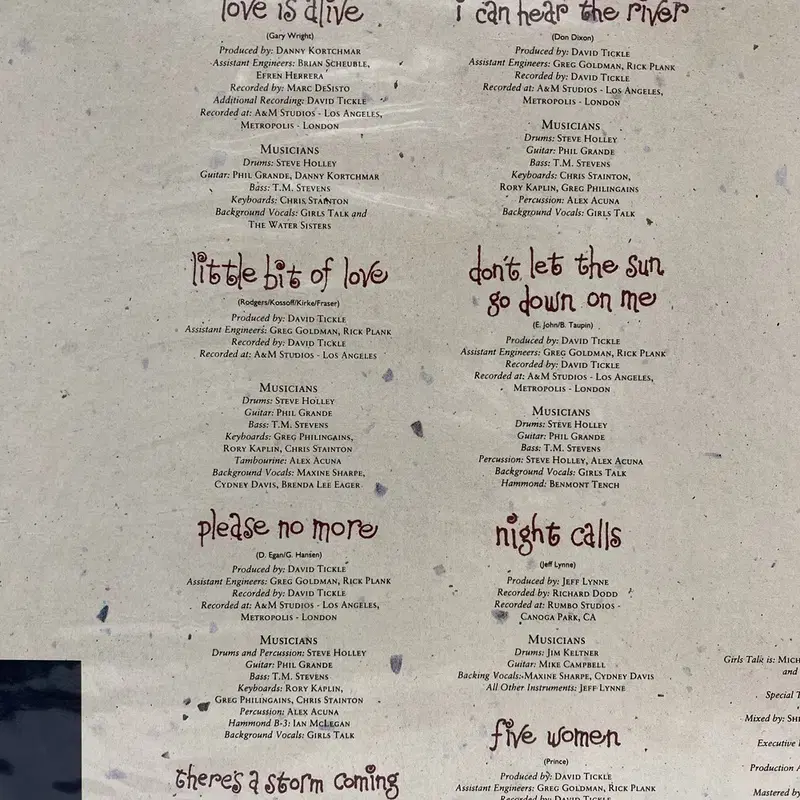 love is alive
(Gary Wright)
Produced by: DANNY KORTCHMAR
Assistant Engineers: BRIAN SCHEUBLE,
EFREN HERRERA
Recorded by: MARC DESISTO
Additional Recording: DAVID TICKLE
Recorded at: A&M STUDIOS - LOS ANGELES,
METROPOLIS - LONDON
MUSICIANS
Drums: STEVE HOLLEY
Guitar: PHIL GRANDE, DANNY KORTCHMAR
Bass: T.M. STEVENS
Keyboards: CHRIS STAINTON
Background Vocals: GIRLS TALK and
THE WATER SISTERS
little bit of love
(Rodgers/Kossoff/Kirke/Fraser)
Produced by: DAVID TICKLE
Assistant Engineers: GREG GOLDMAN, RICK PLANK
Recorded by: DAVID TICKLE
Recorded at: A&M STUDIOS - LOS ANGELES
MUSICIANS
Drums: STEVE HOLLEY
Guitar: PHIL GRANDE
Bass: T.M. STEVENS
Keyboards: GREG PHILINGAINS,
RORY KAPLIN, CHRIS STAINTON
Tambourine: ALEX ACUNA
Background Vocals: MAXINE SHARPE,
CYDNEY DAVIS, BRENDA LEE EAGER
please no more
(D. Egan/G. Hansen)
Produced by: DAVID TICKLE
Assistant Engineers: GREG GOLDMAN, RICK PLANK
Recorded by: DAVID TICKLE
Recorded at: A&M STUDIOS - LOS ANGELES,
METROPOLIS - LONDON
MUSICIANS
Drums and Percussion: STEVE HOLLEY
Guitar: PHIL GRANDE
Bass: T.M. STEVENS
Keyboards: RORY KAPLIN,
GREG PHILINGAINS, CHRIS STAINTON
Percussion: ALEX ACUNA
Hammond B-3: IAN MCLEGAN
Background Vocals: GIRLS TALK
there's a storm coming
i can hear the river
(Don Dixon)
Produced by: DAVID TICKLE
Assistant Engineers: GREG GOLDMAN, RICK PLANK
Recorded by: DAVID TICKLE
Recorded at: A&M STUDIOS - LOS ANGELES,
METROPOLIS - LONDON
MUSICIANS
Drums: STEVE HOLLEY
Guitar: PHIL GRANDE
Bass: T.M. STEVENS
Keyboards: CHRIS STAINTON,
RORY KAPLIN, GREG PHILINGAINS
Percussion: ALEX ACUNA
Background Vocals: GIRLS TALK
don't let the sun
go down on me
(E. John/B. Taupin)
Produced by: DAVID TICKLE
Assistant Engineers: GREG GOLDMAN, RICK PLANK
Recorded by: DAVID TICKLE
Recorded at: A&M STUDIOS - LOS ANGELES,
METROPOLIS - LONDON
MUSICIANS
Drums: STEVE HOLLEY
Guitar: PHIL GRANDE
Bass: T.M. STEVENS
Percussion: STEVE HOLLEY, ALEX ACUNA
Background Vocals: GIRLS TALK
Hammond: BENMONT TENCH
night calls
(Jeff Lynne)
Produced by: JEFF LYNNE
Recorded by: RICHARD DODD
Recorded at: RUMBO STUDIOS -
CANOGA PARK, CA
MUSICIANS
Drums: JIM KELTNER
Guitar: MIKE CAMPBELL
Backing Vocals: MAXINE SHARPE, CYDNEY DAVIS
All Other Instruments: JEFF LYNNE
five women
(Prince)
Produced by: DAVID TICKLE
Assistant Engineers: GREG GOLDMAN, RICK PLANK
Recorded by: DAVID TICKLE
Girls Talk is:
and
Special
Mixed by:
Executive
Production
Mastered by